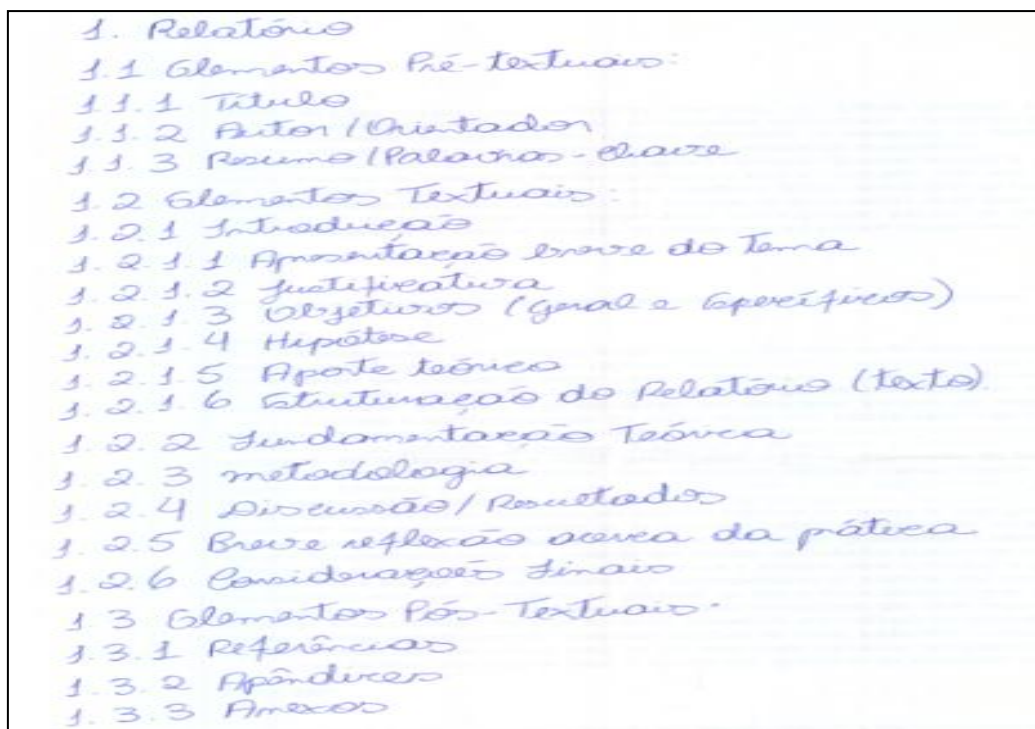 1. Relatório
1.1 Elementos Pré-textuais:
1.1.1 Título
1.1.2 Autor/Orientador
1.1.3 Resumo/Palavras-chave
1.2 Elementos Textuais:
1.2.1 Introdução
1.2.1.1 Apresentação breve do Tema
1.2.1.2 Justificativa
1.2.1.3 Objetivos (Geral e Específicos)
1.2.1.4 Hipótese
1.2.1.5 Aporte teórico
1.2.1.6 Estruturação do Relatório (texto).
1.2.2 Fundamentação Teórica
1.2.3 metodologia
1.2.4 Discussão/Resultados
1.2.5 Breve reflexão acerca da prática
1.2.6 Considerações Finais
1.3 Elementos Pós-Textuais.
1.3.1 Referências
1.3.2 Apêndices
1.3.3 Anexos